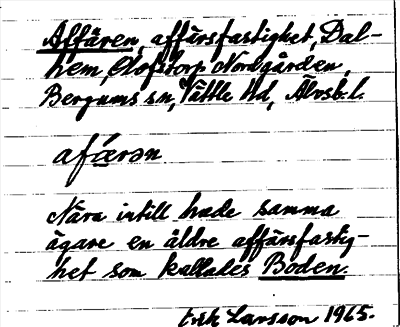 Affären, affärsfastighet, Dal-
hem, Olofstorp Nordgården,
Bergums sn, Vättle hd, Älvsb. l.
afǽrən
Nära intill hade samma
ägare en äldre affärsfastig-
het som kallades Boden.
Erik Larsson 1965.